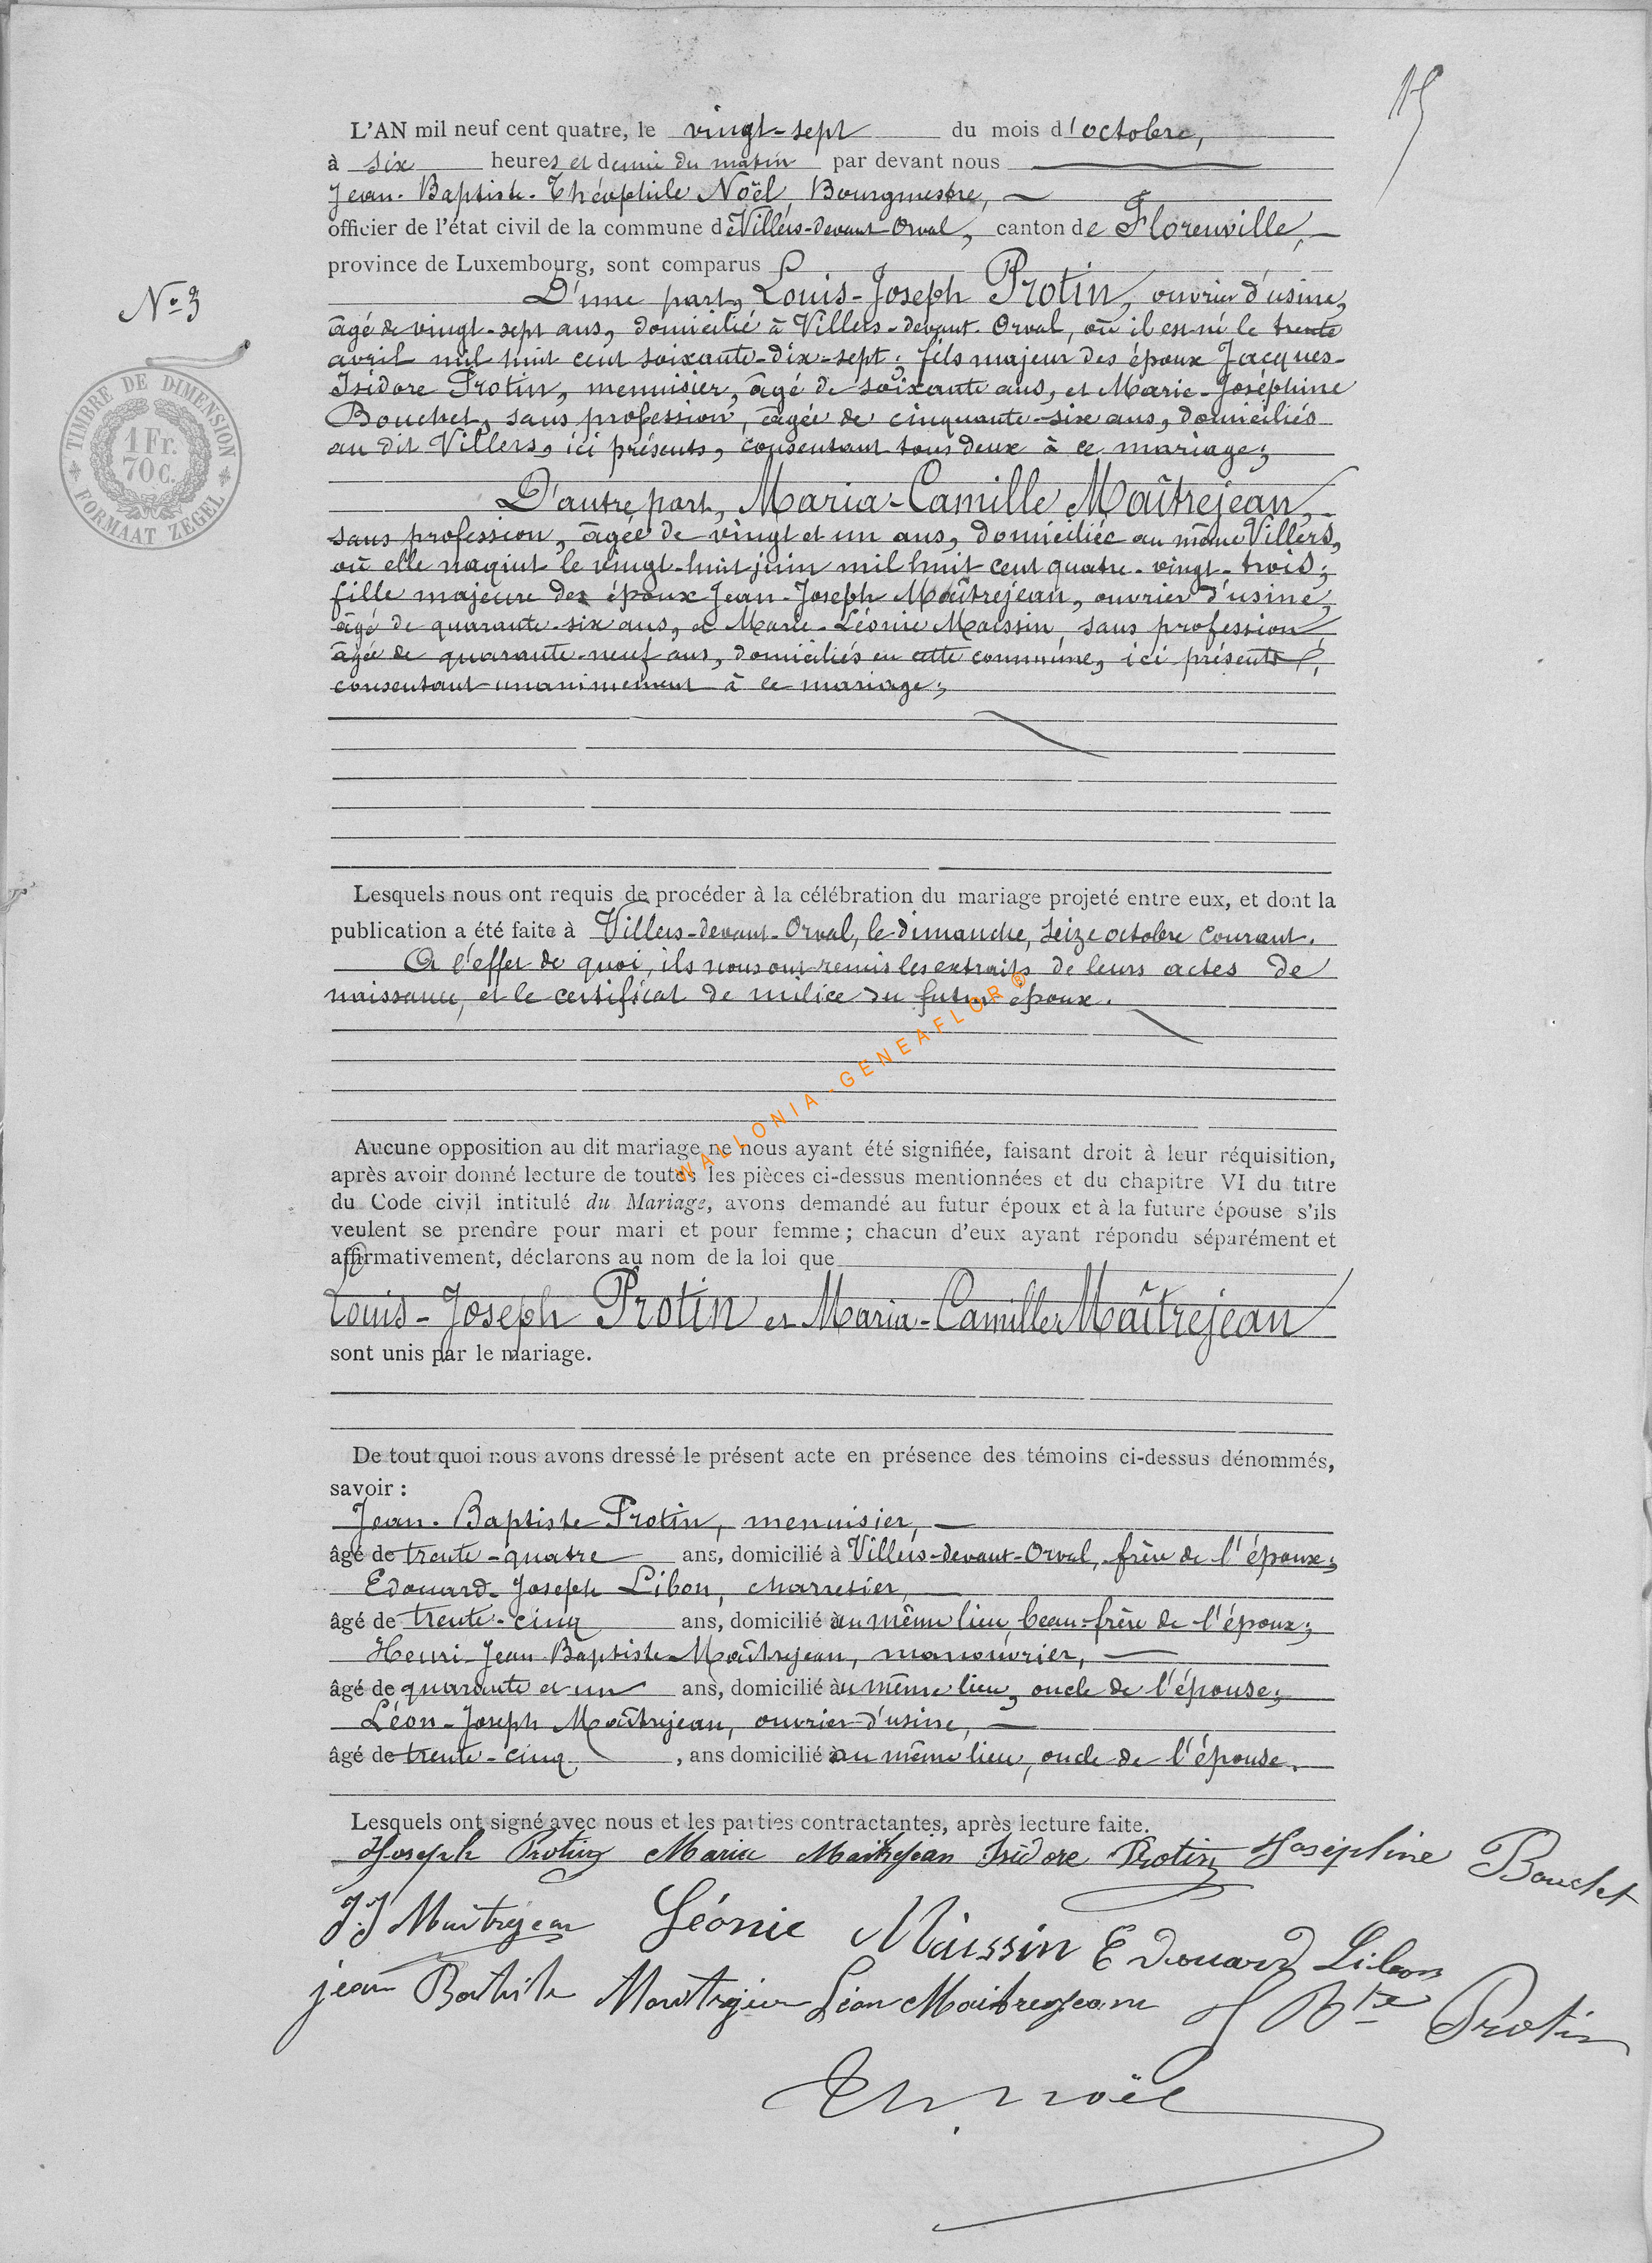 15
L'AN mil neuf cent quatre, le vingt-sept du mois d'octobre,
à six heures et demie du matin par devant nous
Jean-Baptiste-Théophile Noël, Bourgmestre,
officier de l'état civil de la commune de Villers-devant-Orval, canton de Florenville,
province de Luxembourg, sont comparus
N° 3
D'une part, Louis-Joseph Protin, ouvrier d'usine,
âgé de vingt-sept ans, domicilié à Villers-devant-Orval, où il est né le trente
avril mil huit cent soixante-dix-sept; fils majeur des époux Jacques-
Isidore Protin, menuisier, âgé de soixante ans, et Marie-Joséphine
Bouchet, sans profession, âgée de cinquante-six ans, domiciliés
au dit Villers, ici présents, consentant tous deux à ce mariage;
TIMBRE DE DIMENSION
1 Fr.
70 c.
FORMAAT ZEGEL
D'autre part, Maria-Camille Maîtrejean,
sans profession, âgée de vingt et un ans, domiciliée au même Villers,
où elle naquit le vingt-huit juin mil huit cent quatre-vingt-trois;
fille majeure des époux Jean-Joseph Maîtrejean, ouvrier d'usine,
âgé de quarante-six ans, et Marie-Léonie Maissin, sans profession,
âgée de quarante-neuf ans, domiciliés en cette commune, ici présents,
consentant unanimement à ce mariage;
Lesquels nous ont requis de procéder à la célébration du mariage projeté entre eux, et dont la
publication a été faite à Villers-devant-Orval, le dimanche, seize octobre courant.
A l'effet de quoi, ils nous ont remis les extraits de leurs actes de
naissance, et le certificat de milice du futur époux.
WALLONIA-GENEAFLOR®
Aucune opposition au dit mariage ne nous ayant été signifiée, faisant droit à leur réquisition,
après avoir donné lecture de toutes les pièces ci-dessus mentionnées et du chapitre VI du titre
du Code civil intitulé du Mariage, avons demandé au futur époux et à la future épouse s'ils
veulent se prendre pour mari et pour femme; chacun d'eux ayant répondu séparément et
affirmativement, déclarons au nom de la loi que
Louis-Joseph Protin et Maria-Camille Maîtrejean
sont unis par le mariage.
De tout quoi nous avons dressé le présent acte en présence des témoins ci-dessus dénommés,
savoir :
Jean-Baptiste Protin, menuisier,
âgé de trente-quatre ans, domicilié à Villers-devant-Orval, frère de l'époux;
Edouard-Joseph Libon, charretier,
âgé de trente-cinq ans, domicilié au même lieu, beau-frère de l'époux;
Henri-Jean-Baptiste Maîtrejean, manouvrier,
âgé de quarante et un ans, domicilié au même lieu, oncle de l'épouse;
Léon-Joseph Maîtrejean, ouvrier d'usine,
âgé de trente-cinq, ans domicilié au même lieu, oncle de l'épouse.
Lesquels ont signé avec nous et les parties contractantes, après lecture faite.
Joseph Protin Maria Maitrejean Isidore Protin Joséphine Bouchet
J.J Maitrejean Léonie Maissin Edouard Libon
jean Batiste Maitrejean Léon Maitrejean J Bte Protin
Th. Noël